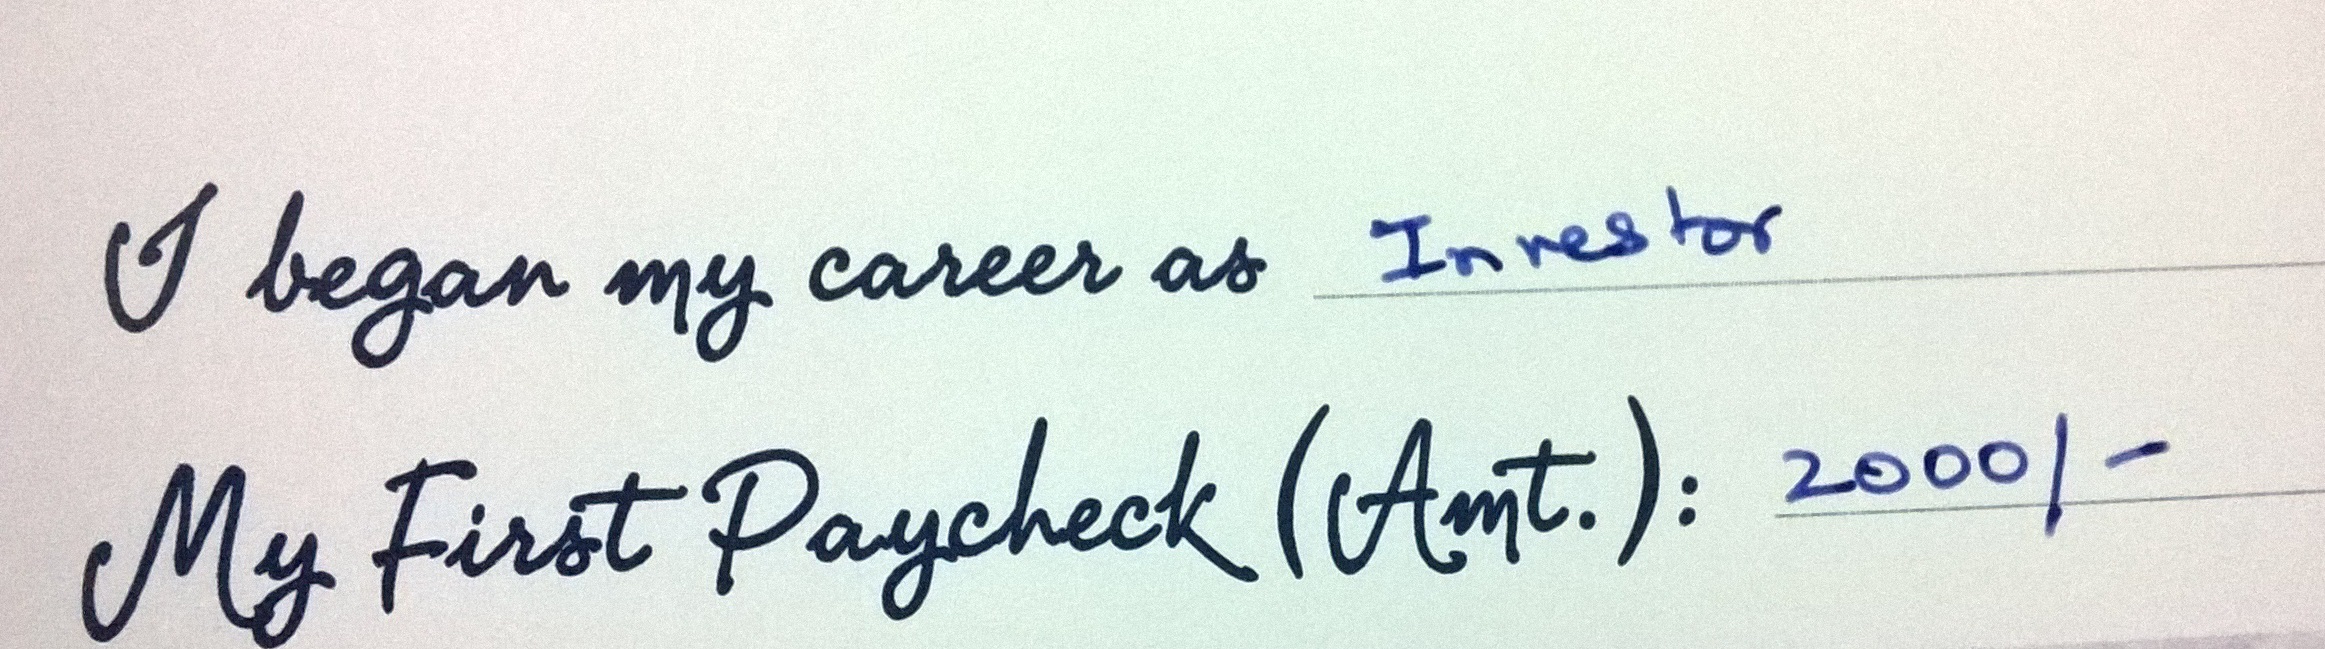 I began my career as Investor
My First Paycheck (Amt.): 2000/-